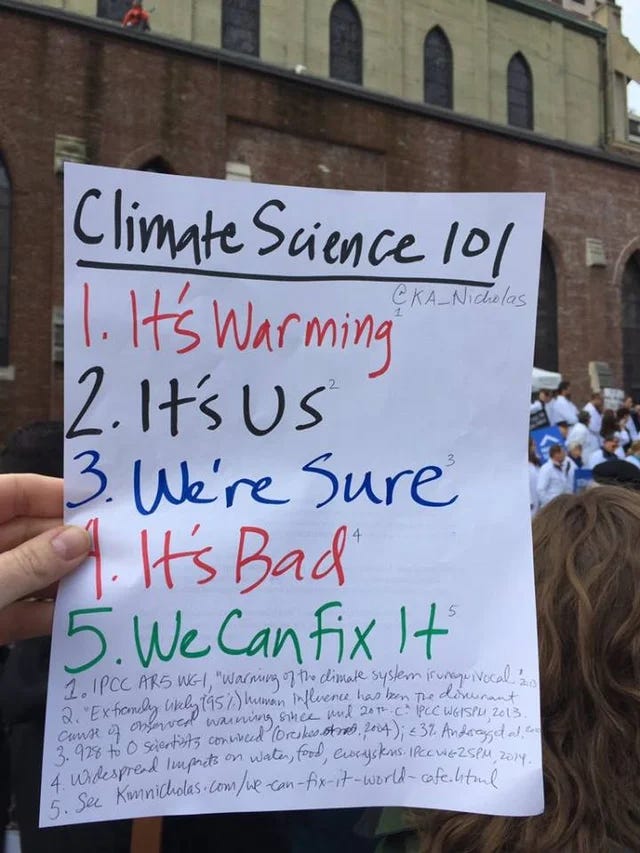 Climate Science 101
@KA_Nicholas
1. It's Warming 1
2. It's Us 2
3. We're Sure 3
4. It's Bad 4
5. We Can Fix It 5
1. IPCC AR5 WG1, "Warming of the climate system is unequivocal." 2013
2. "Extremely likely (95%) human influence has been the dominant
cause of observed warming since mid 20th C." IPCC WG1SPM, 2013.
3. 928 to 0 scientists convinced (Oreskes 2004); ≤3% Anderegg et al,
4. Widespread impacts on water, food, ecosystems. IPCC WG2SPM, 2014.
5. See Kimnicholas.com/we-can-fix-it-world-cafe.html